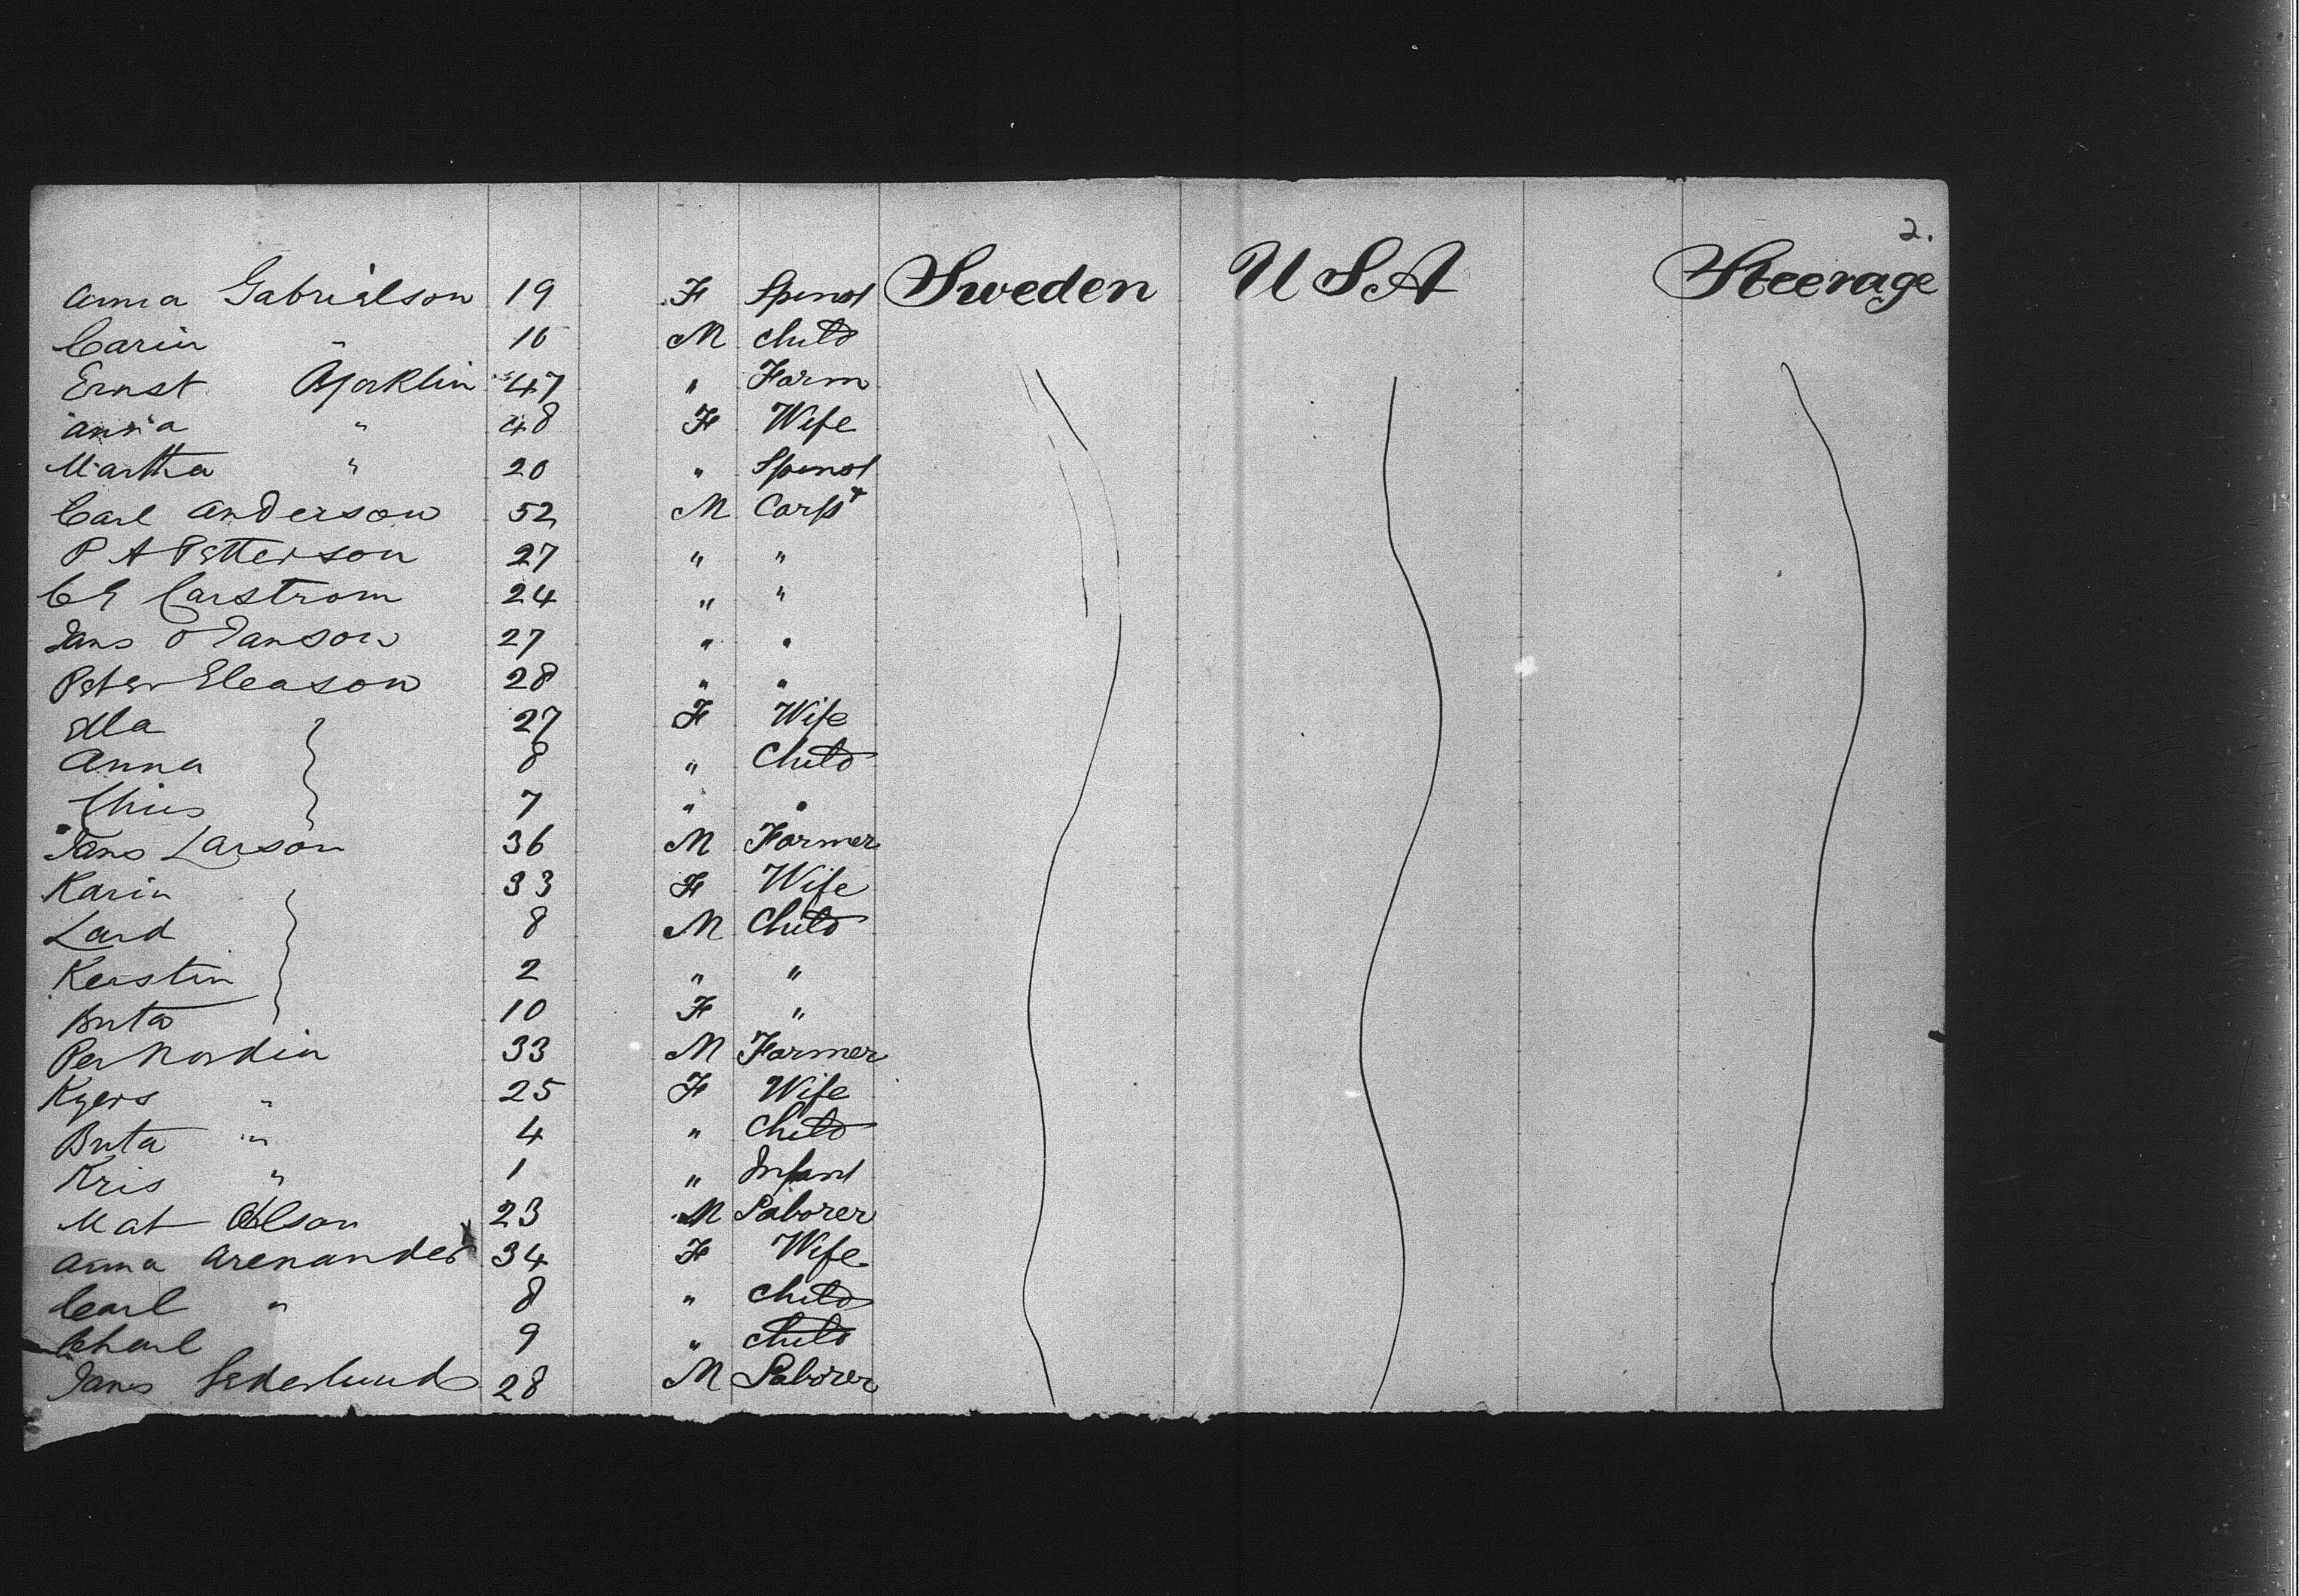 2.
Anna Gabrielson 19 F Spinst Sweden USA Steerage
Carin " 10 M Child
Ernst Bjorklin 47 " Farm
Anna " 48 F Wife
Martha " 20 " Spinst
Carl Anderson 52 M Carpr
P A Petterson 27 " "
C E Carstrom 24 " "
Jans O Janson 27 " "
Peter Eleason 28 " "
Ella 27 F Wife
Anna 8 " Child
Chris 7 " "
Jans Larson 36 M Farmer
Karin 33 F Wife
Lard 8 M Child
Kerstin 2 " "
Brita 10 F "
Per Nordin 33 M Farmer
Kyers " 25 F Wife
Brita " 4 " Child
Kris " 1 " Infant
Mat Olson 23 M Laborer
Anna Arenander 34 F Wife
Carl " 8 " Child
Charl 9 " Child
Jans Sederlund 28 M Laborer